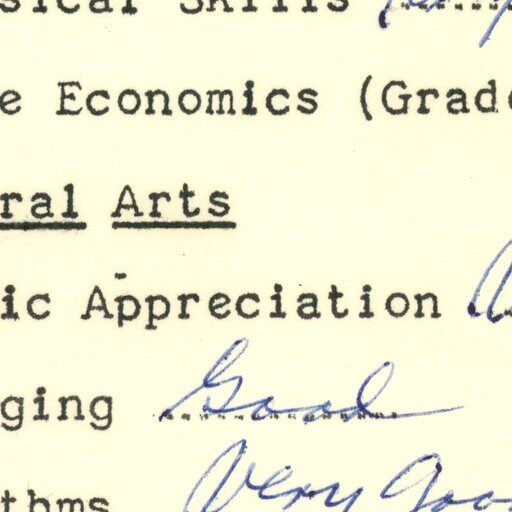 sical Skills
e Economics (Grade
ral Arts
ic Appreciation
ging Good
thms Very Goo